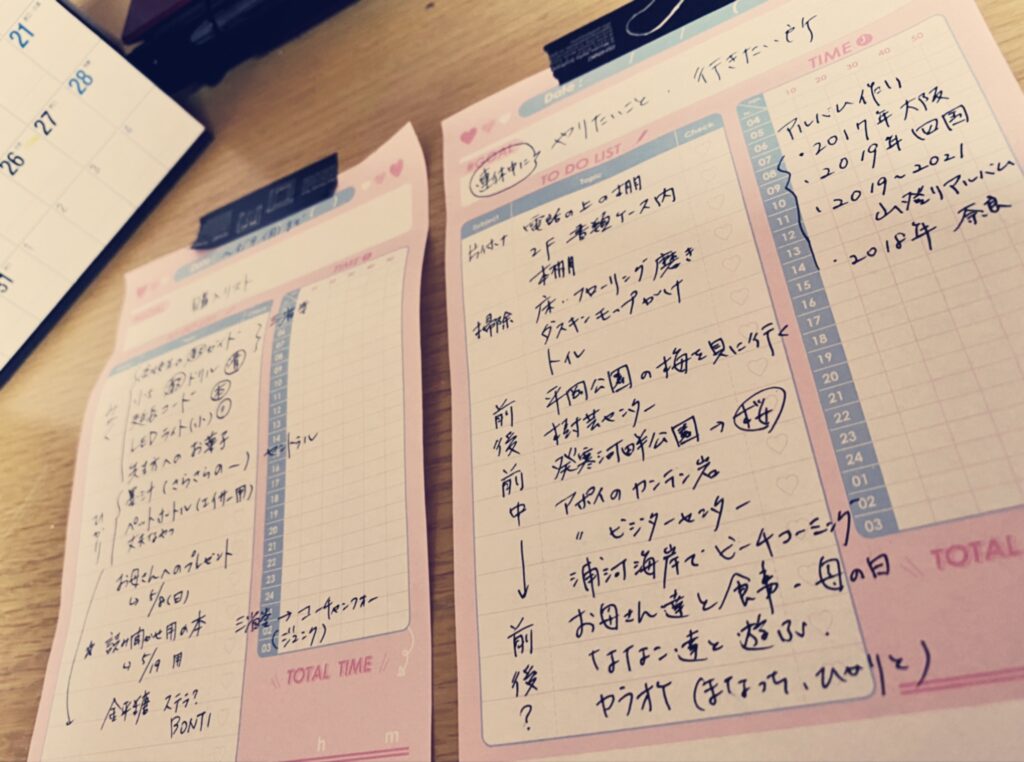 21
28
27
26
31
購入リスト
TIME
三省堂
LEDライト(小)
先生方へのお菓子
墨汁(さらさらの一)
セントラル
お母さんへのプレゼント
↳ 5/8(日)
★ 読み聞かせ用の本
↳ 5/19 用
三省堂 → コーチャンフォー
(ジュンク)
金平糖 ステラ?
BONTI
TOTAL TIME
h m
Date:
やりたいこと、行きたい所
GOAL
連休中に
TO DO LIST
Check
Subject
Topic
片付け 電話の上の棚
2F 書類ケース内
本棚
掃除 床・フローリング磨き
ダスキンモップがけ
トイレ
前 平岡公園の梅を見に行く
後 樹芸センター
前 発寒河畔公園 → 桜
中 アポイのカンラン岩
〃 ビジターセンター
↓ 浦河海岸でビーチコーミング
お母さん達と食事-母の日
前 ななこ達と遊ぶ.
後? カラオケ (まなっち、ひかりと)
TIME
10 20 30 40 50
アルバム作り
・2017年 大阪
・2019年 四国
・2019~2021
山登りアルバム
・2018年 奈良
04
05
06
07
08
09
10
11
12
13
14
15
16
17
18
19
20
21
22
23
24
01
02
03
TOTAL